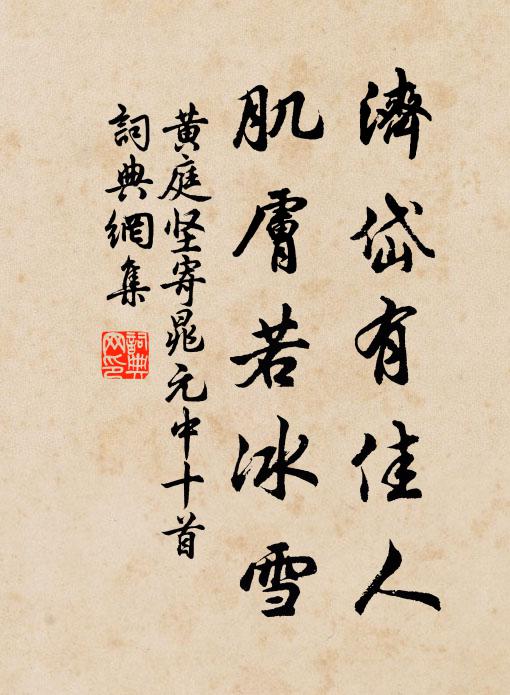 濟岱有佳人
肌膚若冰雪
黃庭坚寄晁元中十首
詞典網集
詞典
网印